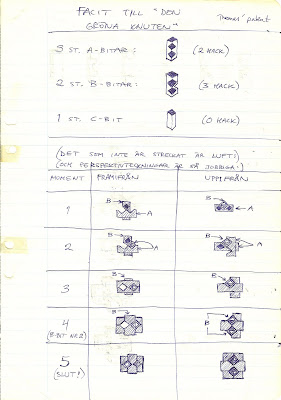 FACIT TILL "DEN
GRÖNA KNUTEN"
Thomas' patent
3 ST. A-BITAR: (2 HACK)
2 ST. B-BITAR: (3 HACK)
1 ST. C-BIT (0 HACK)
(DET SOM INTE ÄR STRECKAT ÄR LUFT!)
(OCH PERSPEKTIVTECKNINGAR ÄR SÅ JOBBIGA!)
MOMENT FRAMIFRÅN UPPIFRÅN
1 B A A
2 B A B A
3 B B
4 B
(B-BIT NO 2)
5
(SLUT!)